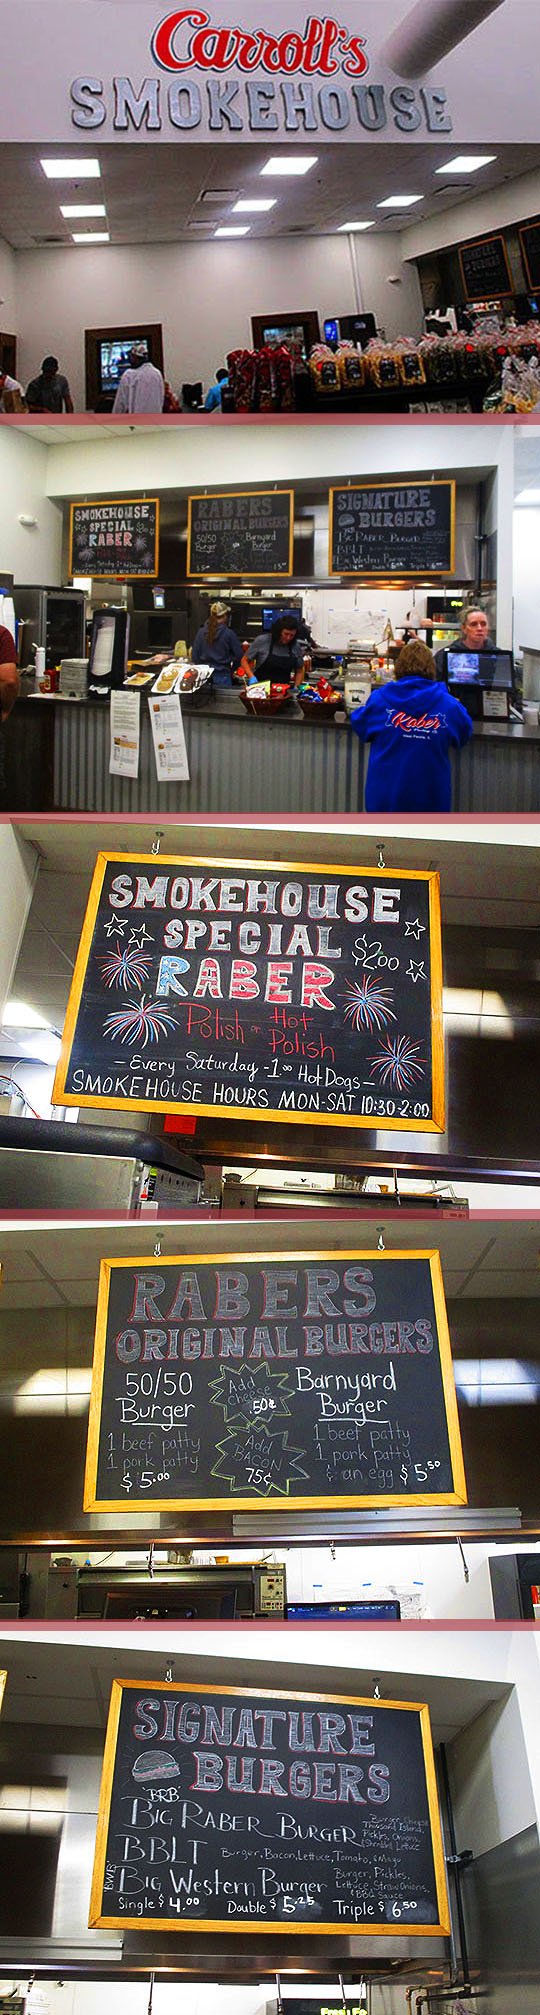 Carroll's
SMOKEHOUSE
SIGNATURE
BURGERS
SMOKEHOUSE
SPECIAL
RABER
SMOKEHOUSE HOURS MON-SAT
RABERS
ORIGINAL BURGERS
50/50
Burger
Barnyard
Burger
SIGNATURE
BURGERS
BIG RABER BURGER
BBLT
BIG Western Burger
Raber
SMOKEHOUSE
SPECIAL
$2.00
RABER
Polish or Hot
Polish
- Every Saturday - 1.00 Hot Dogs -
SMOKEHOUSE HOURS MON-SAT 10:30-2:00
RABERS
ORIGINAL BURGERS
50/50
Burger
1 beef patty
1 pork patty
$5.00
Add
Cheese
.50¢
Add
BACON
75¢
Barnyard
Burger
1 beef patty
1 pork patty
& an egg $5.50
SIGNATURE
BURGERS
"BRB"
BIG RABER BURGER
Burger, Cheese
Thousand Island,
Pickles, Onions,
Shredded Lettuce
BBLT Burger, Bacon, Lettuce, Tomato, & Mayo
BWB
BIG Western Burger
Burger, Pickles,
Lettuce, Straw Onions,
& BBQ Sauce
Single $4.00 Double $5.25 Triple $6.50